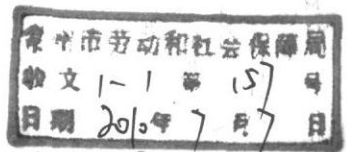 市劳动和社会保障局
收文 1-1 第 157 号
日期 2010年 7 月 7 日